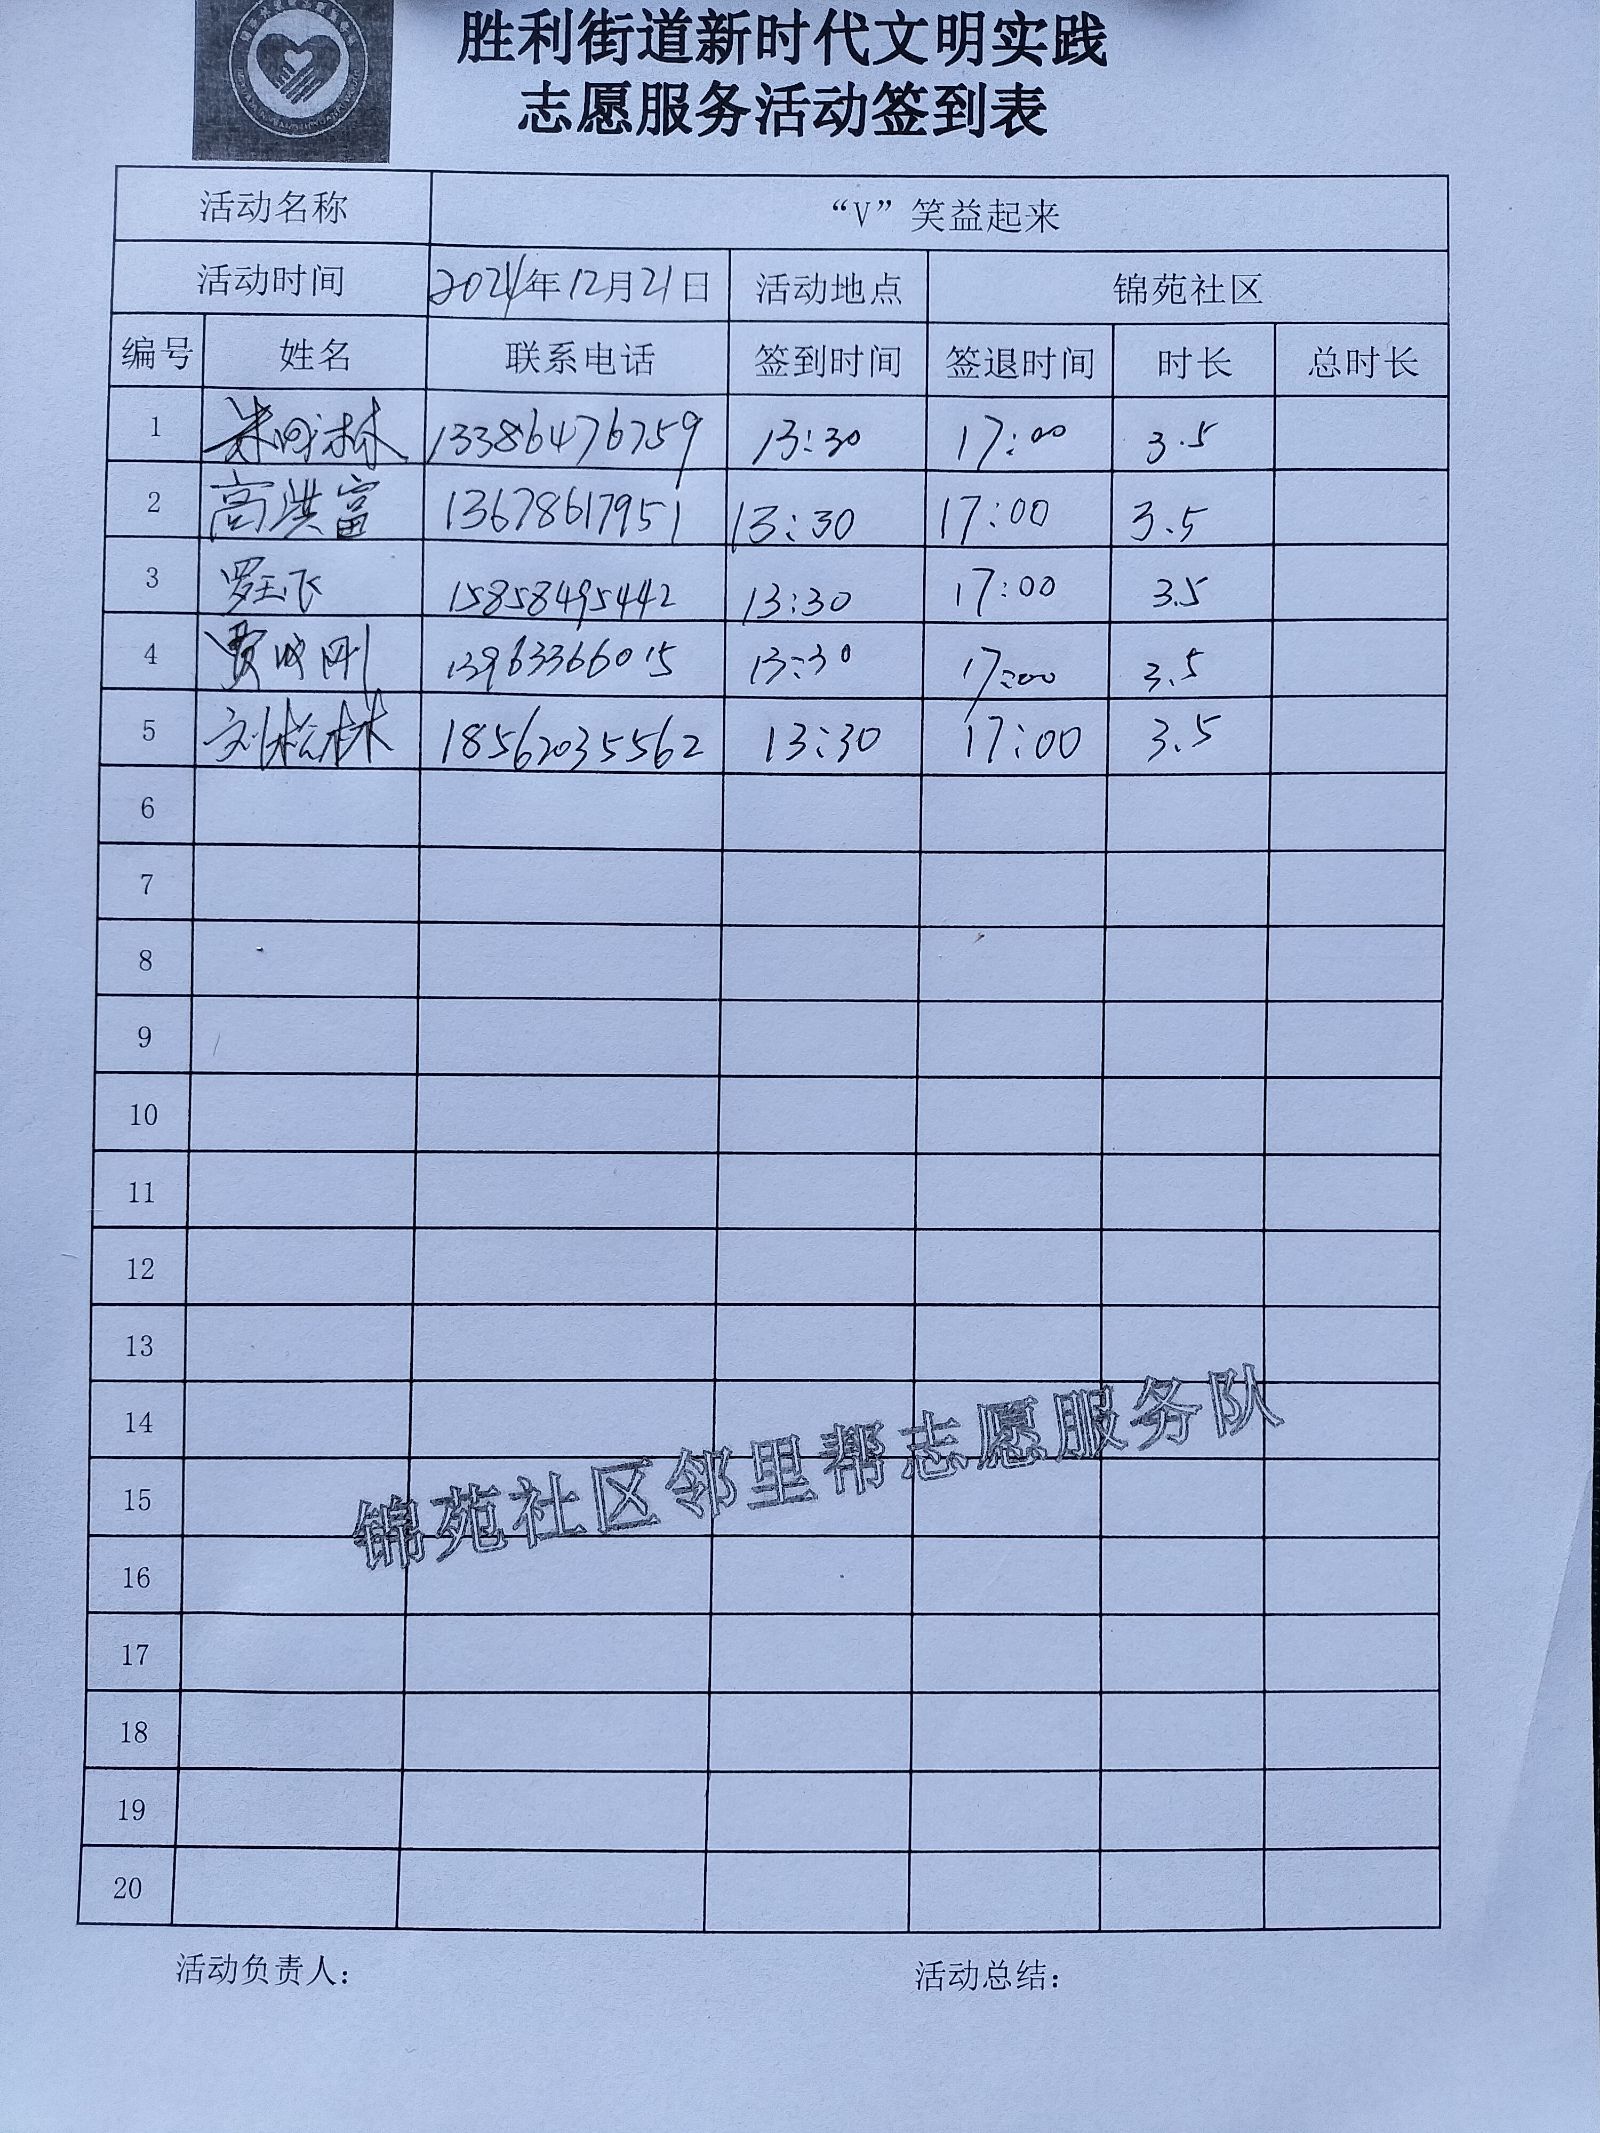 胜利街道新时代文明实践
志愿服务活动签到表
活动名称 “V”笑益起来
活动时间 2021年12月21日 活动地点 锦苑社区
编号 姓名 联系电话 签到时间 签退时间 时长 总时长
1 13386476759 13:30 17:00 3.5
2 高洪富 13678617951 13:30 17:00 3.5
3 罗玉飞 15858495442 13:30 17:00 3.5
4 贾成刚 13963366015 13:30 17:00 3.5
5 刘松林 18562035562 13:30 17:00 3.5
6
7
8
9
10
11
12
13
14
15
16
17
18
19
20
锦苑社区邻里帮志愿服务队
活动负责人： 活动总结：